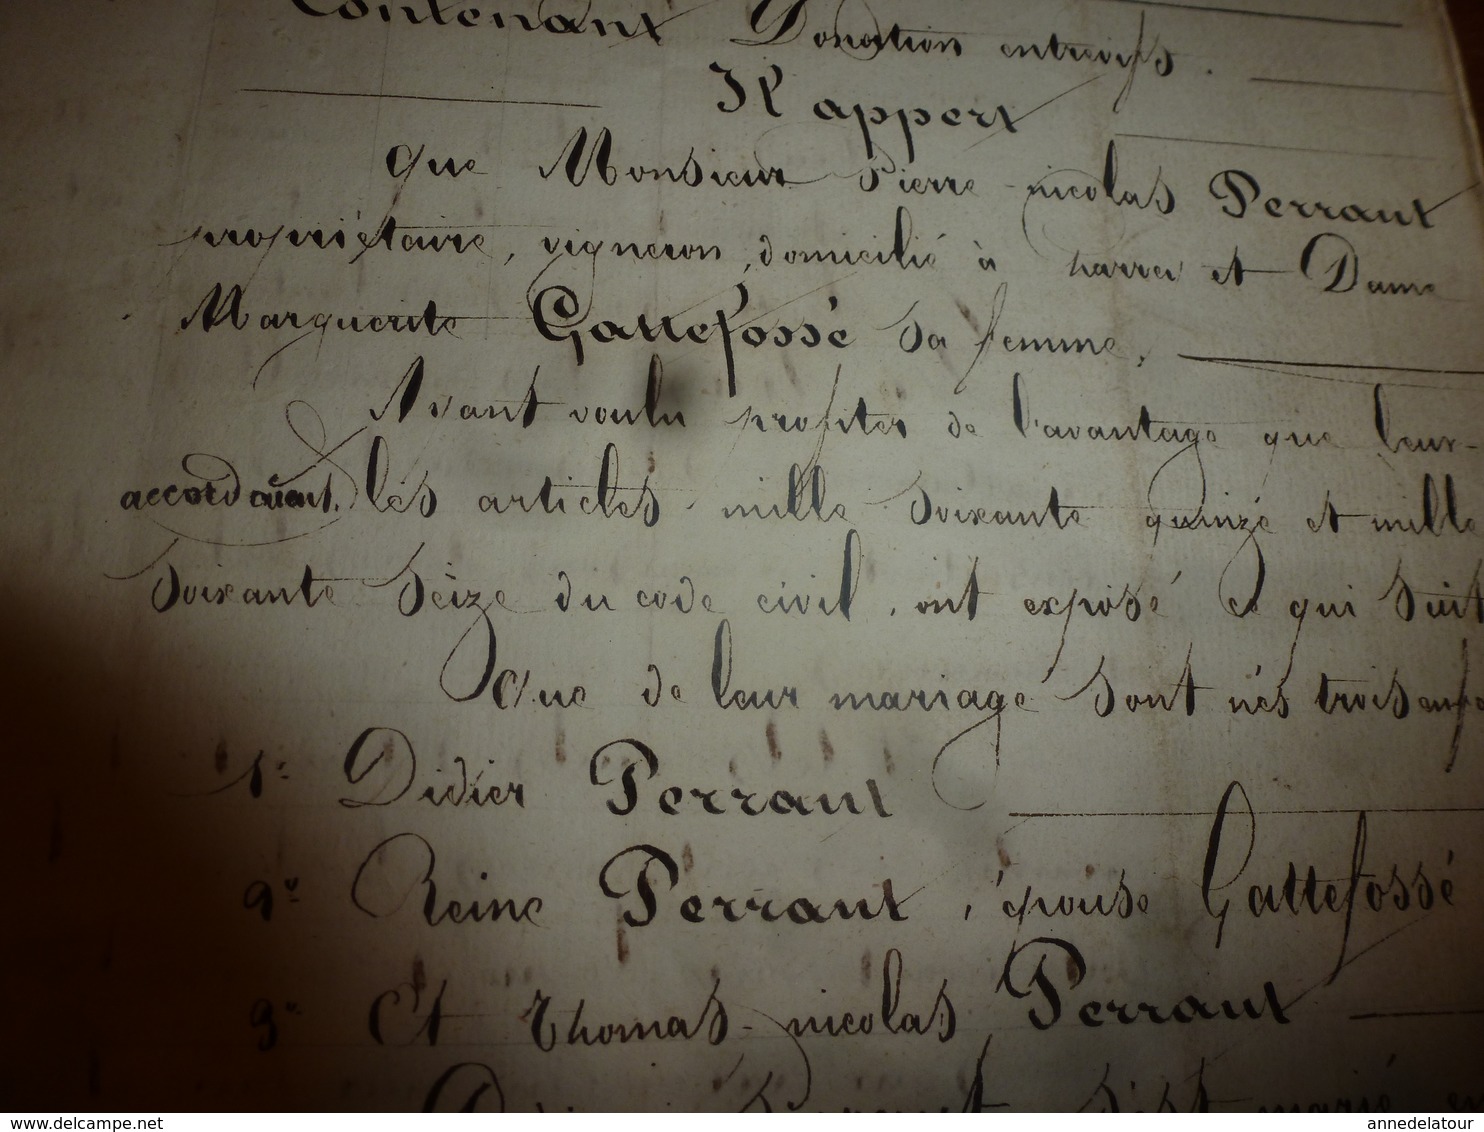 Contenant Donation entrevifs.
Il appert
que Monsieur Pierre-nicolas Perraut
propriétaire, vigneron, domicilié à harrei et Dame
Marguerite Gattefossé sa femme,
Ayant voulu profiter de l'avantage que leur-
accordaient les articles mille soixante quinze et mille
soixante seize du code civil, ont exposé ce qui suit
Que de leur mariage sont nés trois enfa
1° Didier Perraut
2° Reine Perraut, épouse Gattefossé
3° Et Thomas-nicolas Perraut
s'est marié en
annedelatour